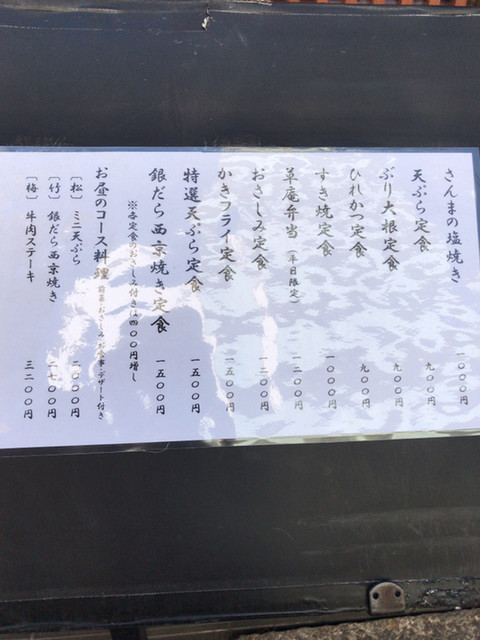 さんまの塩焼き 一〇〇〇円
天ぷら定食 九〇〇円
ぶり大根定食 九〇〇円
ひれかつ定食 九〇〇円
すき焼定食 一〇〇〇円
草庵弁当(平日限定) 一二〇〇円
おさしみ定食 一二〇〇円
かきフライ定食 一五〇〇円
特選天ぷら定食 一五〇〇円
銀だら西京焼き定食 一五〇〇円
※各定食のおさしみ付きは四〇〇円増し
お昼のコース料理 前菜・おさしみ・お食事・デザート付き
〔松〕ミニ天ぷら 二〇〇〇円
〔竹〕銀だら西京焼き
〔梅〕牛肉ステーキ 三二〇〇円